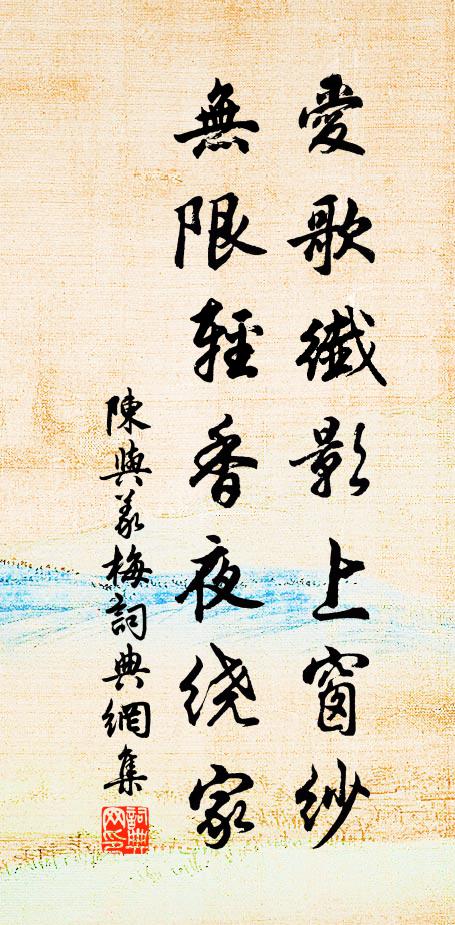 愛歌纖影上窗紗
無限輕香夜绕家
陳與義梅詞典網集
詞典
网印